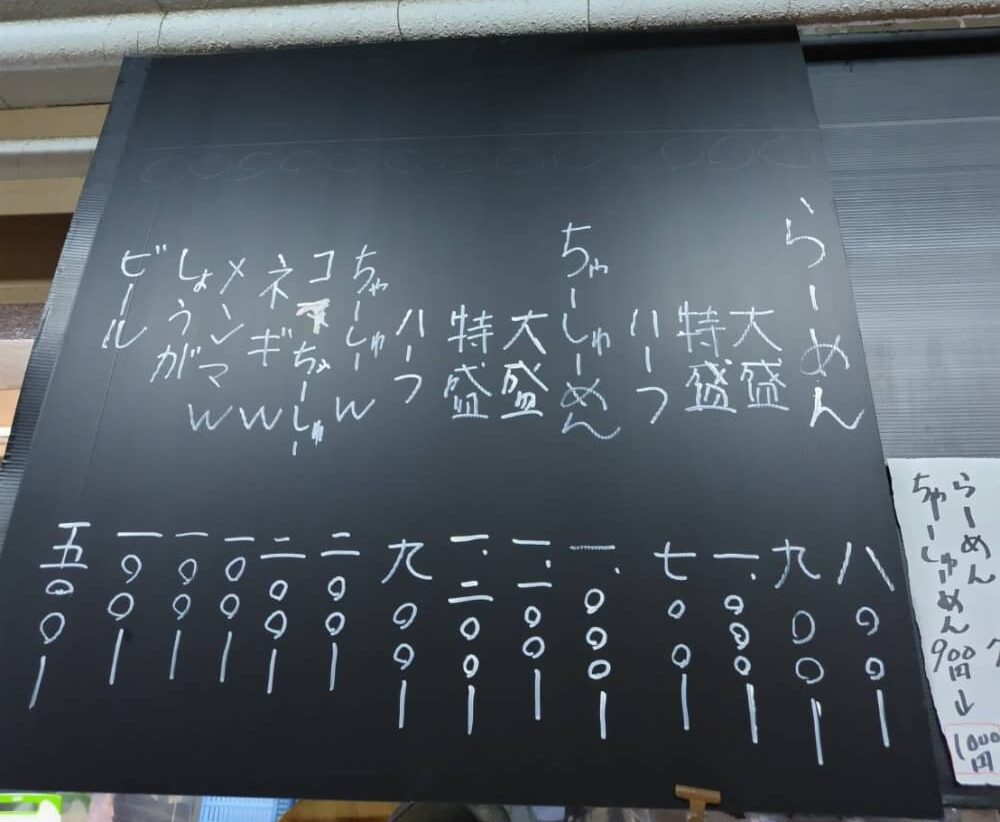 らーめん 八〇〇ー
大盛 九〇〇ー
特盛 一、〇〇〇ー
ハーフ 七〇〇ー
ちゃーしゅーめん 一、〇〇〇ー
大盛 一、一〇〇ー
特盛 一、二〇〇ー
ハーフ 九〇〇ー
ちゃーしゅーW 二〇〇ー
二〇〇ー
ネギW 一〇〇ー
メンマW 一〇〇ー
しょうが 一〇〇ー
ビール 五〇〇ー
らーめん
ちゃーしゅーめん 900円↓1000円